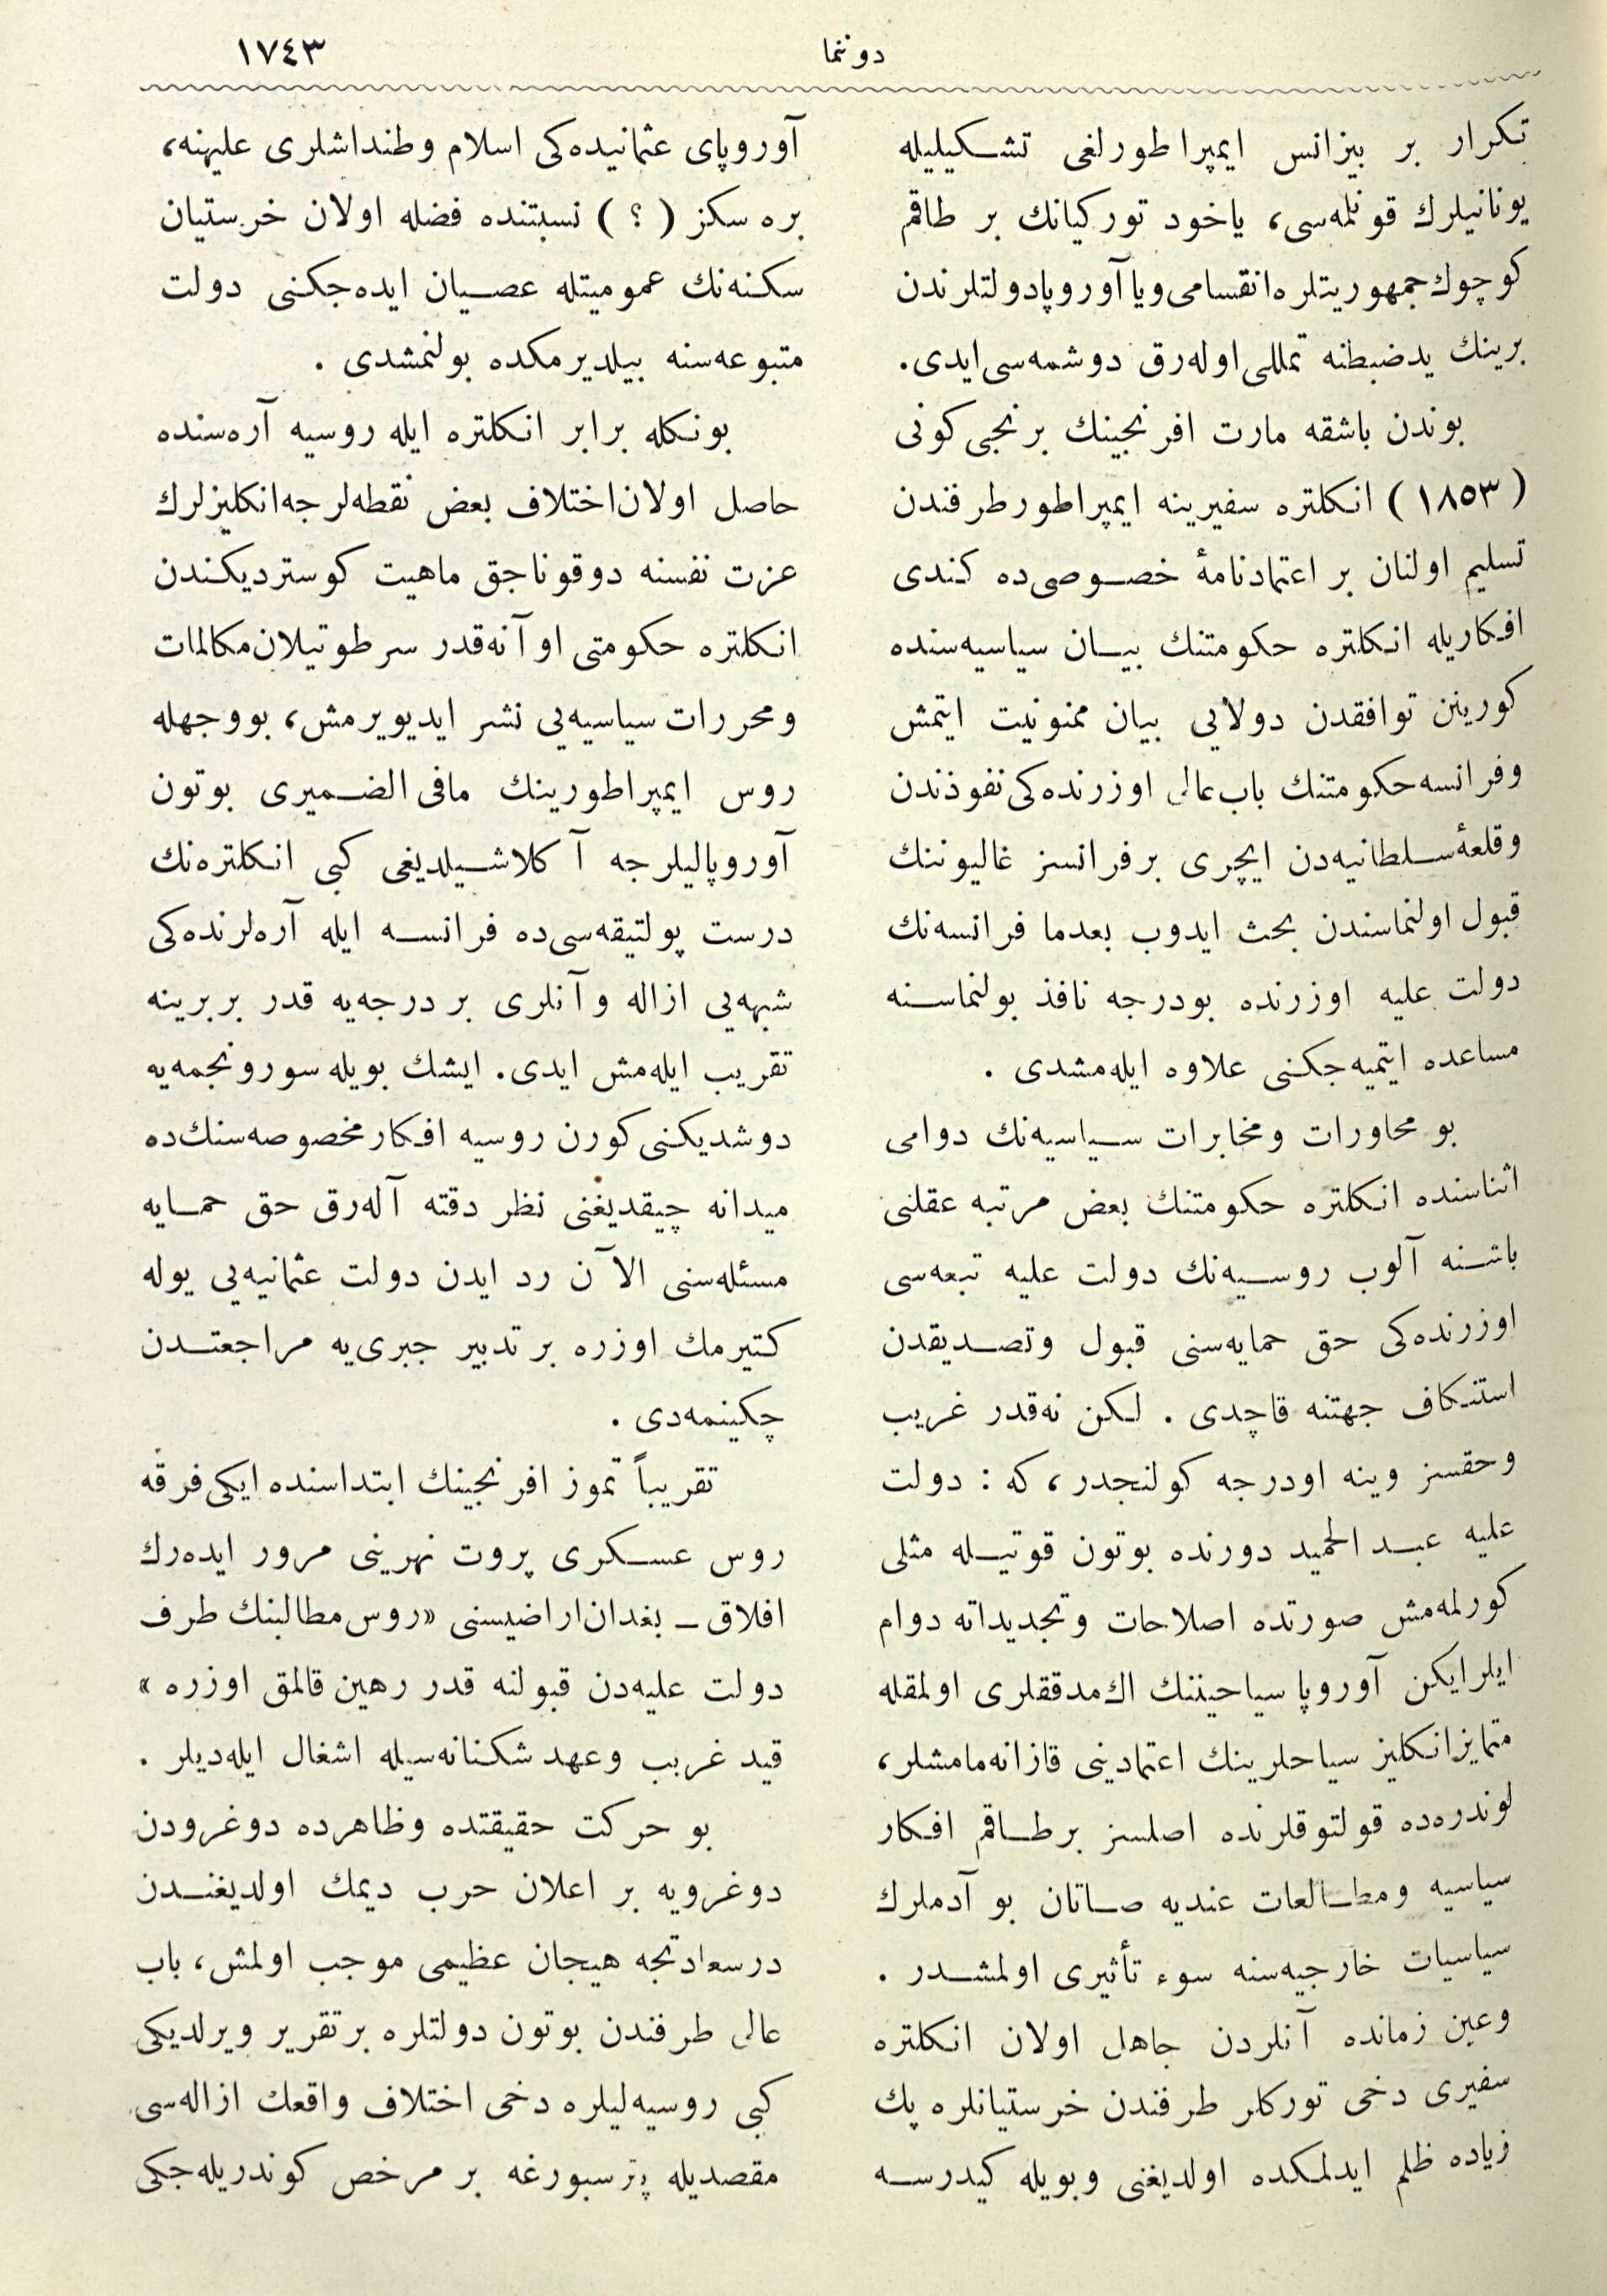 دوننما
١٧٤٣
تكرار بر بيزانس ايمپراطورلغى تشكيليله
يونانيلرك قونلمه‌سى، ياخود توركيانك بر طاقم
كوچوك جمهوريتلره انقسامى ويا آوروپا دولتلرندن
برينك يدضبطنه تمللى اوله‌رق دوشمه‌سى ايدى.
بوندن باشقه مارت افرنجينك برنجى كونى
(١٨٥٣) انكلتره سفيرينه ايمپراطور طرفندن
تسليم اولنان بر اعتمادنامۀ خصوصى‌ده كندى
افكاريله انكلتره حكومتنك بيان سياسيه‌سنده
كورينن توافقدن دولايى بيان ممنونيت ايتمش
وفرانسه حكومتنك باب عالى اوزرنده‌كى نفوذندن
وقلعۀ سلطانيه‌دن ايچرى بر فرانسز غاليوننك
قبول اولنماسندن بحث ايدوب بعدما فرانسه‌نك
دولت عليه اوزرنده بودرجه نافذ بولنماسنه
مساعده ايتميه‌جكنى علاوه ايله‌مشدى .
بو محاورات ومخابرات سياسيه‌نك دوامى
اثناسنده انكلتره حكومتنك بعض مرتبه عقلنى
باشنه آلوب روسيه‌نك دولت عليه تبعه‌سى
اوزرنده‌كى حق حمايه‌سنى قبول وتصديقدن
استنكاف جهتنه قاچدى . لكن نه‌قدر غريب
وحقسز وينه اودرجه كولنجدر، كه : دولت
عليه عبد الحميد دورنده بوتون قوتيله مثلى
كورلمه‌مش صورتده اصلاحات وتجديداته دوام
ايلرايكن آوروپا سياحيننك اك مدققلرى اولمقله
متمايز انكليز سياحلرينك اعتمادينى قازانه‌مامشلر،
لوندره‌ده قولتوقلرنده اصلسز بر طاقم افكار
سياسيه ومطالعات عنديه صاتان بو آدملرك
سياسيات خارجيه‌سنه سوء تأثيرى اولمشدر .
وعين زمانده آنلردن جاهل اولان انكلتره
سفيرى دخى توركلر طرفندن خرستيانلره پك
زياده ظلم ايدلمكده اولديغنى وبويله كيدرسه
آوروپاى عثمانيده‌كى اسلام وطنداشلرى عليهنه،
بره سكز (؟) نسبتنده فضله اولان خرستيان
سكنه‌نك عموميتله عصيان ايده‌جكنى دولت
متبوعه‌سنه بيلديرمكده بولنمشدى .
بونكله برابر انكلتره ايله روسيه آره‌سنده
حاصل اولان اختلاف بعض نقطه‌لرجه انكليزلرك
عزت نفسنه دوقوناجق ماهيت كوسترديكندن
انكلتره حكومتى او آنه‌قدر سر طوتيلان مكالمات
ومحررات سياسيه‌يى نشر ايديويرمش، بووجهله
روس ايمپراطورينك مافى الضميرى بوتون
آوروپاليلرجه آكلاشيلديغى كبى انكلتره‌نك
درست پولتيقه‌سى‌ده فرانسه ايله آره‌لرنده‌كى
شبهه‌يى ازاله وآنلرى بر درجه‌يه قدر بربرينه
تقريب ايله‌مش ايدى. ايشك بويله سورونجمه‌يه
دوشديكنى كورن روسيه افكار مخصوصه‌سنك‌ده
ميدانه چيقديغنى نظر دقته آله‌رق حق حمايه
مسئله‌سنى الآن رد ايدن دولت عثمانيه‌يى يوله
كتيرمك اوزره بر تدبير جبرى‌يه مراجعتدن
چكينمه‌دى .
تقريباً تموز افرنجينك ابتداسنده ايكى فرقه
روس عسكرى پروت نهرينى مرور ايده‌رك
افلاق ـ بغدان اراضيسنى «روس مطالبنك طرف
دولت عليه‌دن قبولنه قدر رهين قالمق اوزره»
قيد غريب وعهد شكنانه‌سيله اشغال ايله‌ديلر .
بو حركت حقيقتده وظاهرده دوغرودن
دوغرويه بر اعلان حرب ديمك اولديغندن
درسعادتجه هيجان عظيمى موجب اولمش، باب
عالى طرفندن بوتون دولتلره بر تقرير ويرلديكى
كبى روسيه‌ليلره دخى اختلاف واقعك ازاله‌سى
مقصديله پترسبورغه بر مرخص كوندريله‌جكى